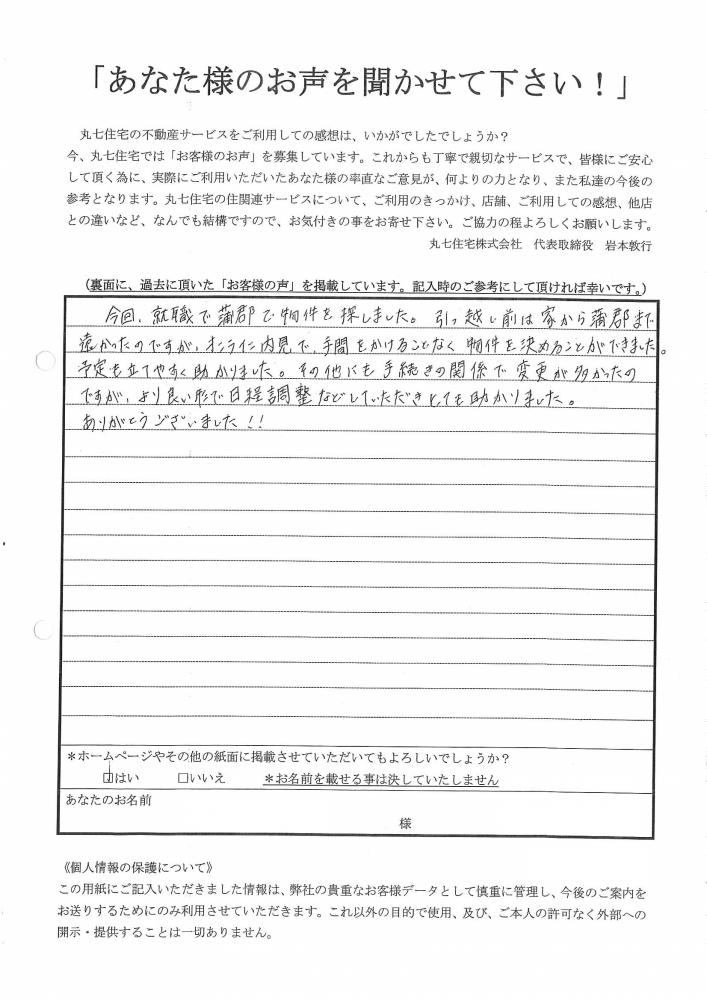 「あなた様のお声を聞かせて下さい！」
丸七住宅の不動産サービスをご利用しての感想は、いかがでしたでしょうか？
今、丸七住宅では「お客様のお声」を募集しています。これからも丁寧で親切なサービスで、皆様にご安心
して頂く為に、実際にご利用いただいたあなた様の率直なご意見が、何よりの力となり、また私達の今後の
参考となります。丸七住宅の住関連サービスについて、ご利用のきっかけ、店舗、ご利用しての感想、他店
との違いなど、なんでも結構ですので、お気付きの事をお寄せ下さい。ご協力の程よろしくお願いします。
丸七住宅株式会社　代表取締役　岩本敦行
（裏面に、過去に頂いた「お客様の声」を掲載しています。記入時のご参考にして頂ければ幸いです。）
今回、就職で蒲郡で物件を探しました。引っ越し前は家から蒲郡まで
遠かったのですが、オンライン内見で、手間をかけることなく物件を決めることができました。
予定も立てやすく助かりました。その他にも手続きの関係で変更が多かったの
ですが、より良い形で日程調整などしていただきとても助かりました。
ありがとうございました!!
＊ホームページやその他の紙面に掲載させていただいてもよろしいでしょうか？
☑はい　□いいえ　＊お名前を載せる事は決していたしません
あなたのお名前
様
《個人情報の保護について》
この用紙にご記入いただきました情報は、弊社の貴重なお客様データとして慎重に管理し、今後のご案内を
お送りするためにのみ利用させていただきます。これ以外の目的で使用、及び、ご本人の許可なく外部への
開示・提供することは一切ありません。